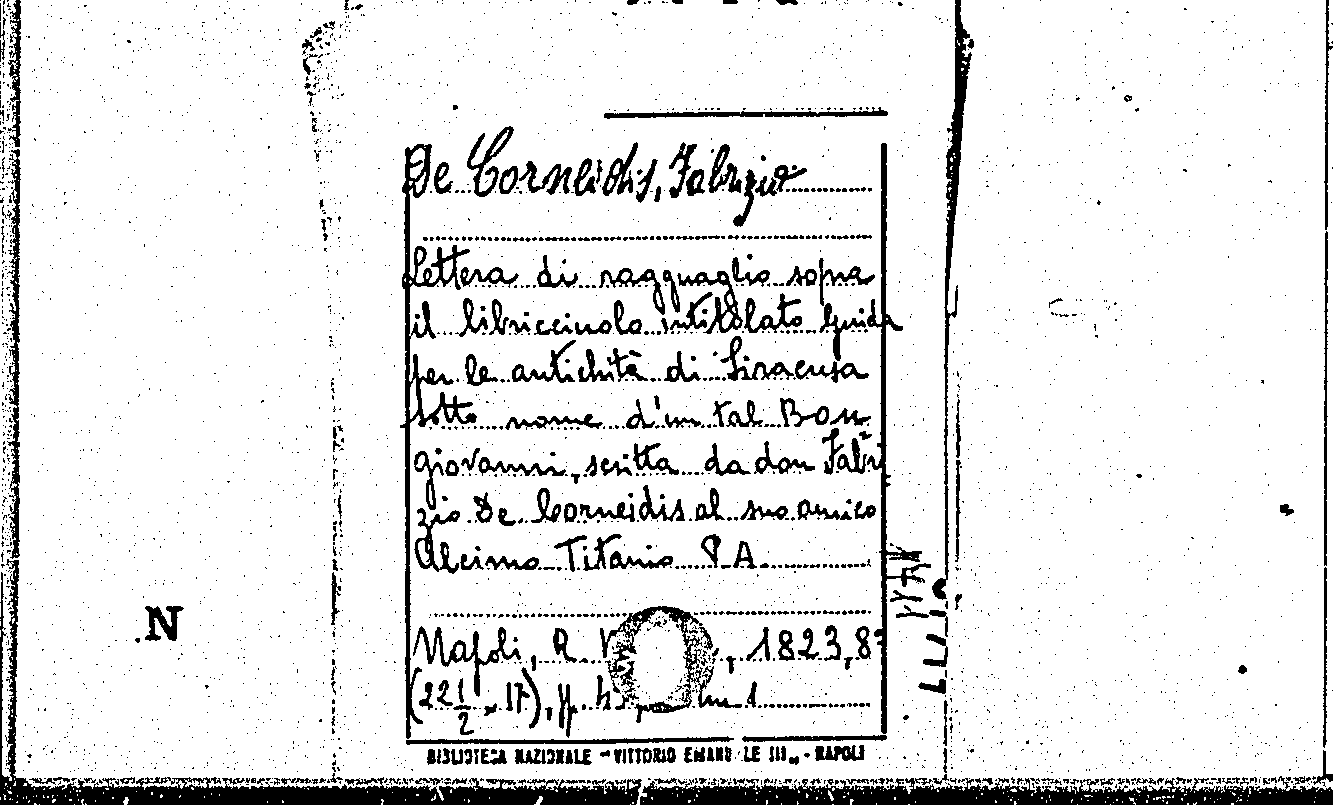 De Corneidis, Fabrizio
Lettera di ragguaglio sopra
il libricciuolo intitolato Guida
per le antichità di Siracusa
sotto nome d'un tal Bon
giovanni, scritta da don Fabri
zio De Corneidis al suo amico
Alcimo Titanio P A.
Napoli, R. 1823, 8º
(22 1/2 x 17), pp.
N
BIBLIOTECA NAZIONALE - VITTORIO EMANUELE III - NAPOLI